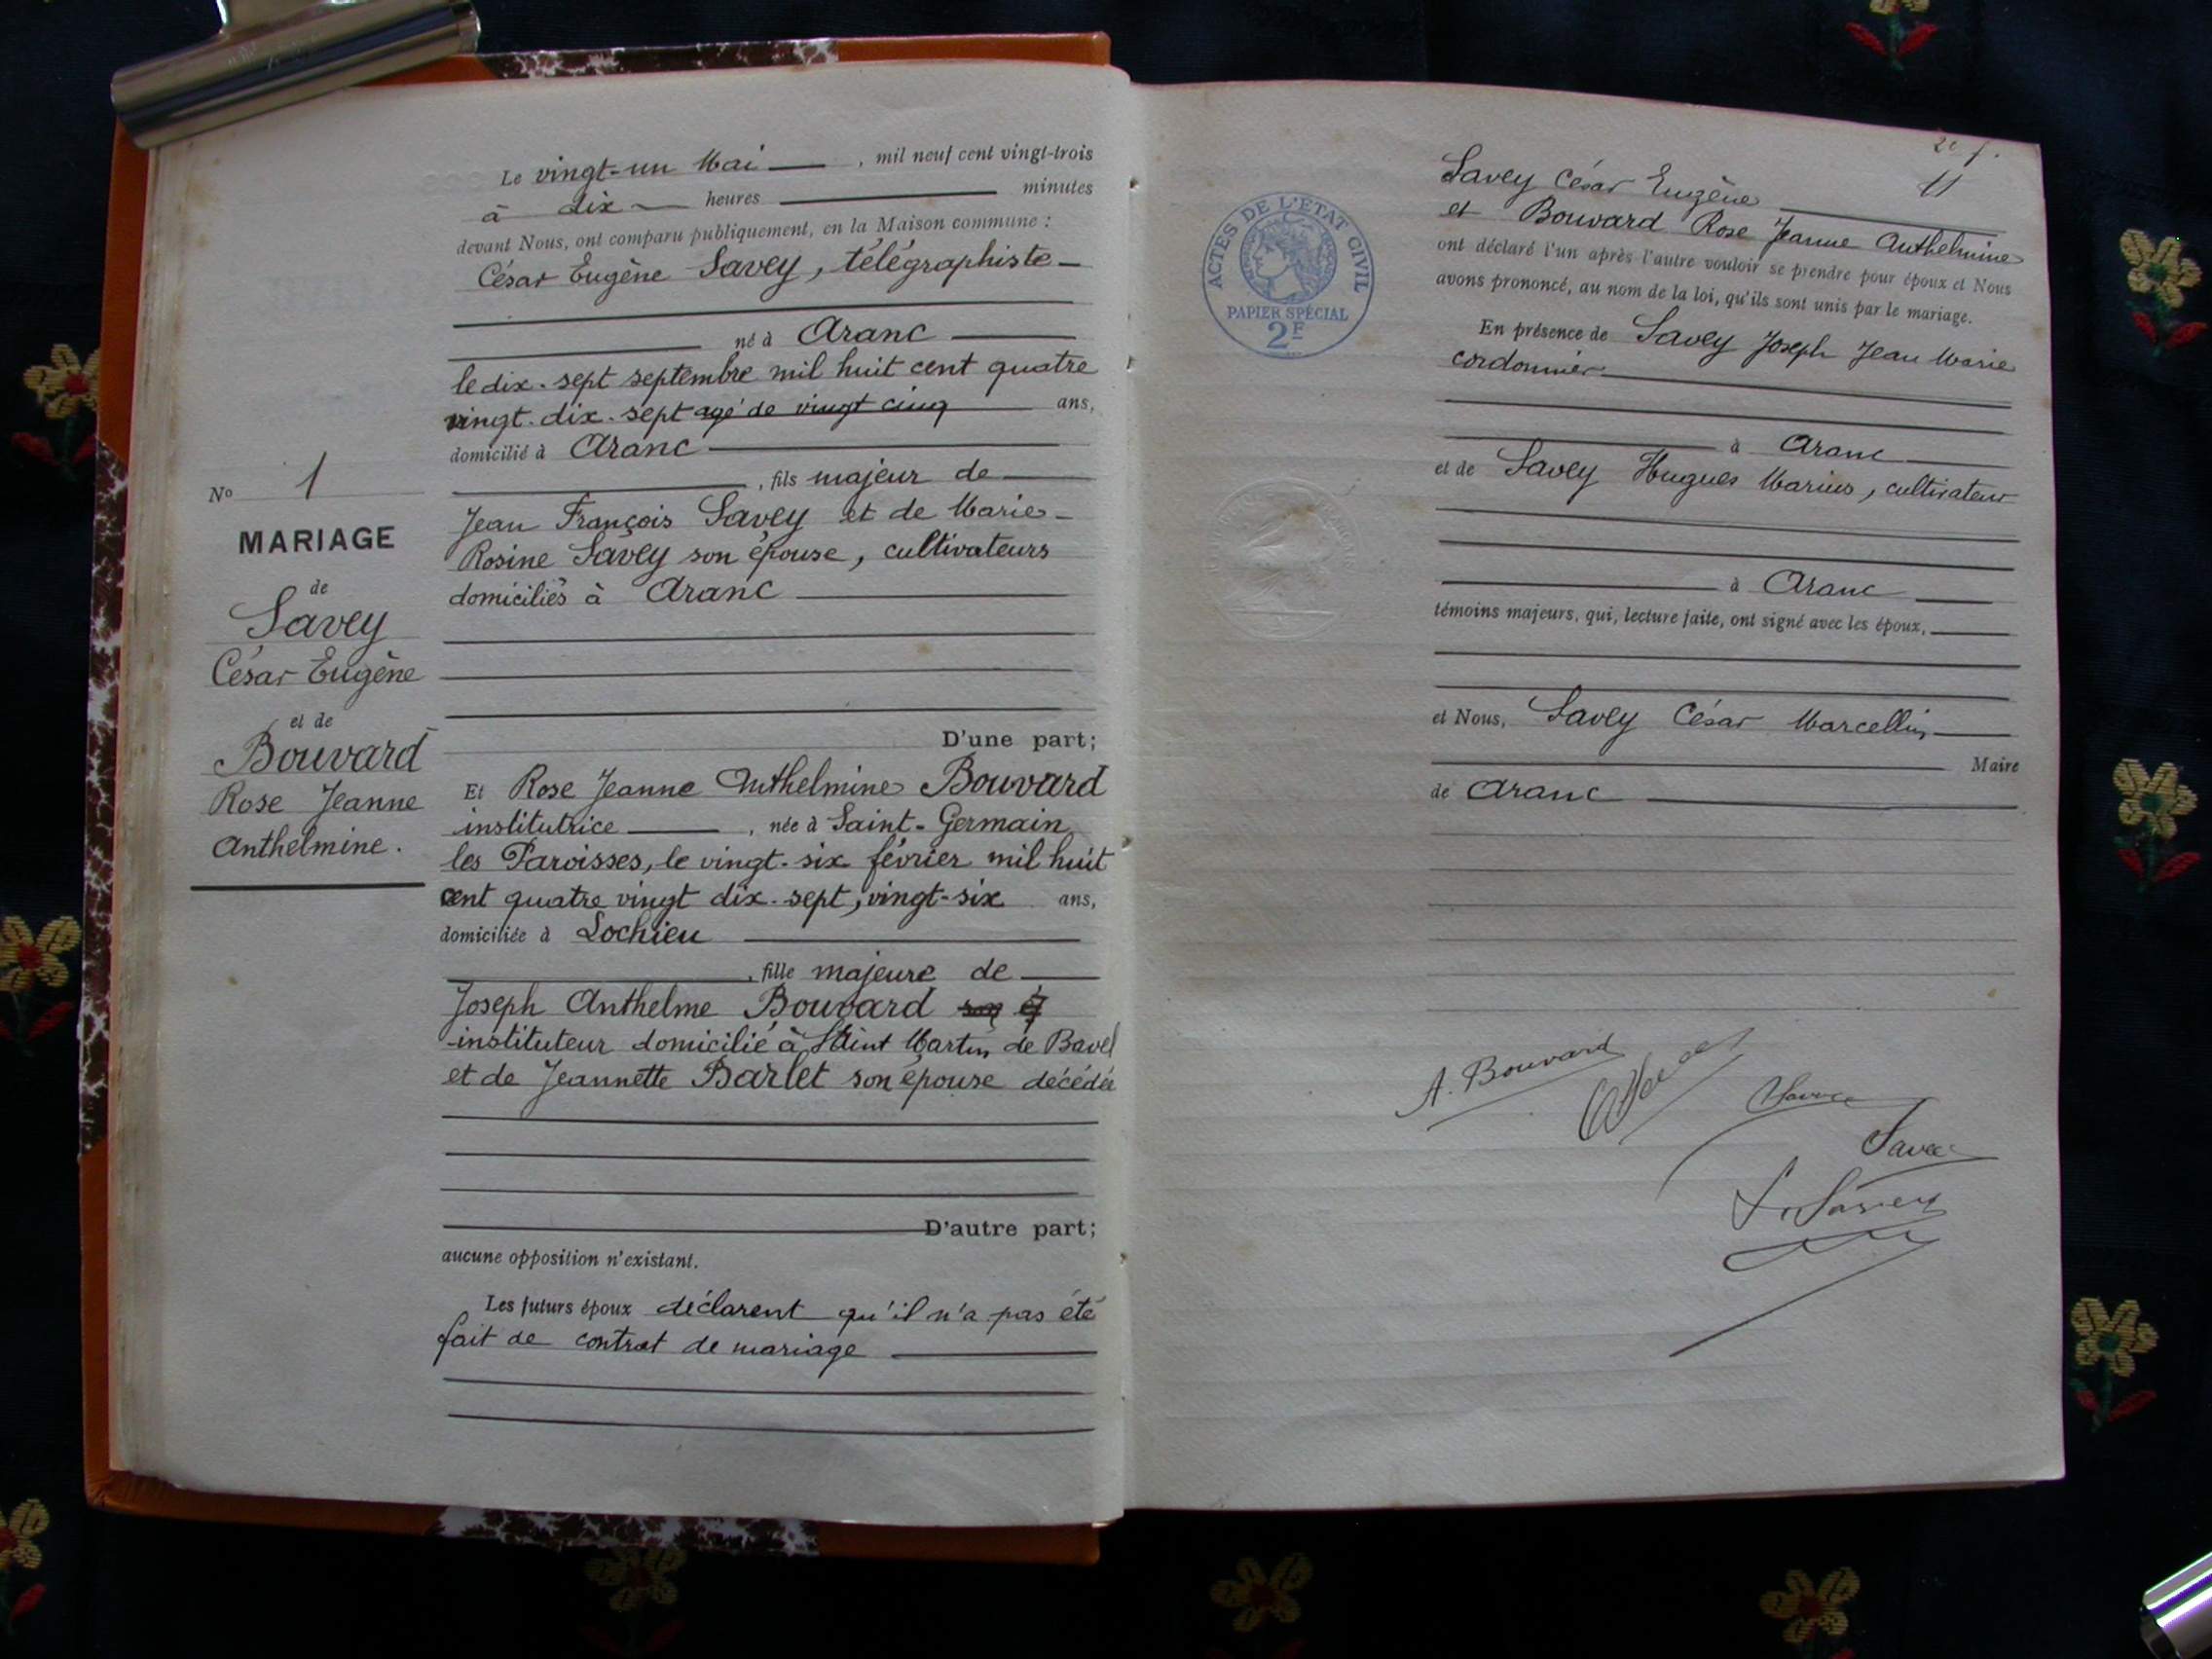 Le vingt-un Mai , mil neuf cent vingt-trois
à dix heures minutes
devant Nous, ont comparu publiquement, en la Maison commune :
César Eugène Savey, télégraphiste
né à Aranc
le dix-sept septembre mil huit cent quatre
vingt-dix-sept agé de vingt cinq ans,
domicilié à Aranc
, fils majeur de
Jean François Savey et de Marie
Rosine Savey son épouse, cultivateurs
domiciliés à Aranc
D'une part;
Et Rose Jeanne Anthelmine Bouvard
institutrice , née à Saint-Germain
les Paroisses, le vingt-six février mil huit
cent quatre vingt dix-sept, vingt-six ans,
domiciliée à Lochieu
, fille majeure de
Joseph Anthelme Bouvard
instituteur domicilié à Saint Martin de Bavel
et de Jeannette Barlet son épouse décédée
D'autre part;
aucune opposition n'existant.
Les futurs époux déclarent qu'il n'a pas été
fait de contrat de mariage
No 1
MARIAGE
de
Savey
César Eugène
et de
Bouvard
Rose Jeanne
Anthelmine.
2e f.
11
ACTES DE L'ÉTAT CIVIL
PAPIER SPÉCIAL
2F
Savey César Eugène
et Bouvard Rose Jeanne Anthelmine
ont déclaré l'un après l'autre vouloir se prendre pour époux et Nous
avons prononcé, au nom de la loi, qu'ils sont unis par le mariage.
En présence de Savey Joseph Jean Marie
cordonnier
à Aranc
et de Savey Hugues Marius, cultivateur
à Aranc
témoins majeurs, qui, lecture faite, ont signé avec les époux,
et Nous, Savey César Marcellin
Maire
de Aranc
A. Bouvard
Savey